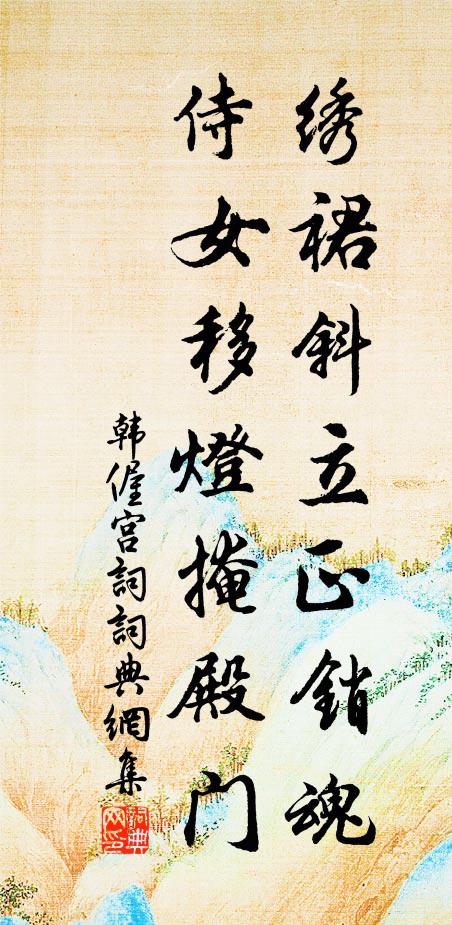 绣裙斜立正銷魂
侍女移燈掩殿門
韩偓宫詞詞典網集
詞典
网印